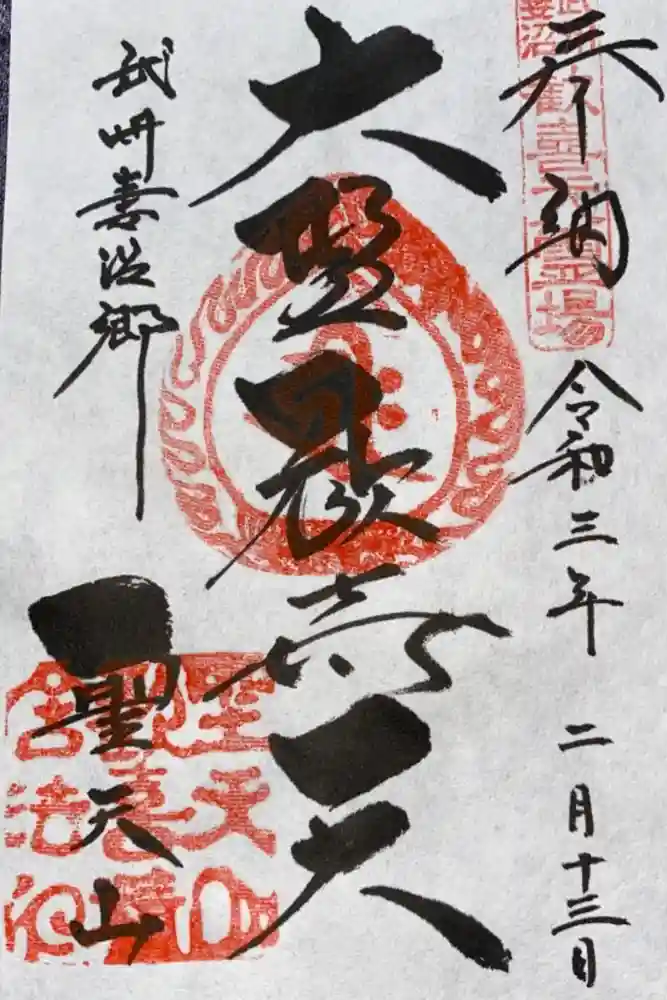 奉納
令和三年 二月十三日
歓喜天霊場
大聖歓喜天
武州妻沼郷
聖天山
聖天山